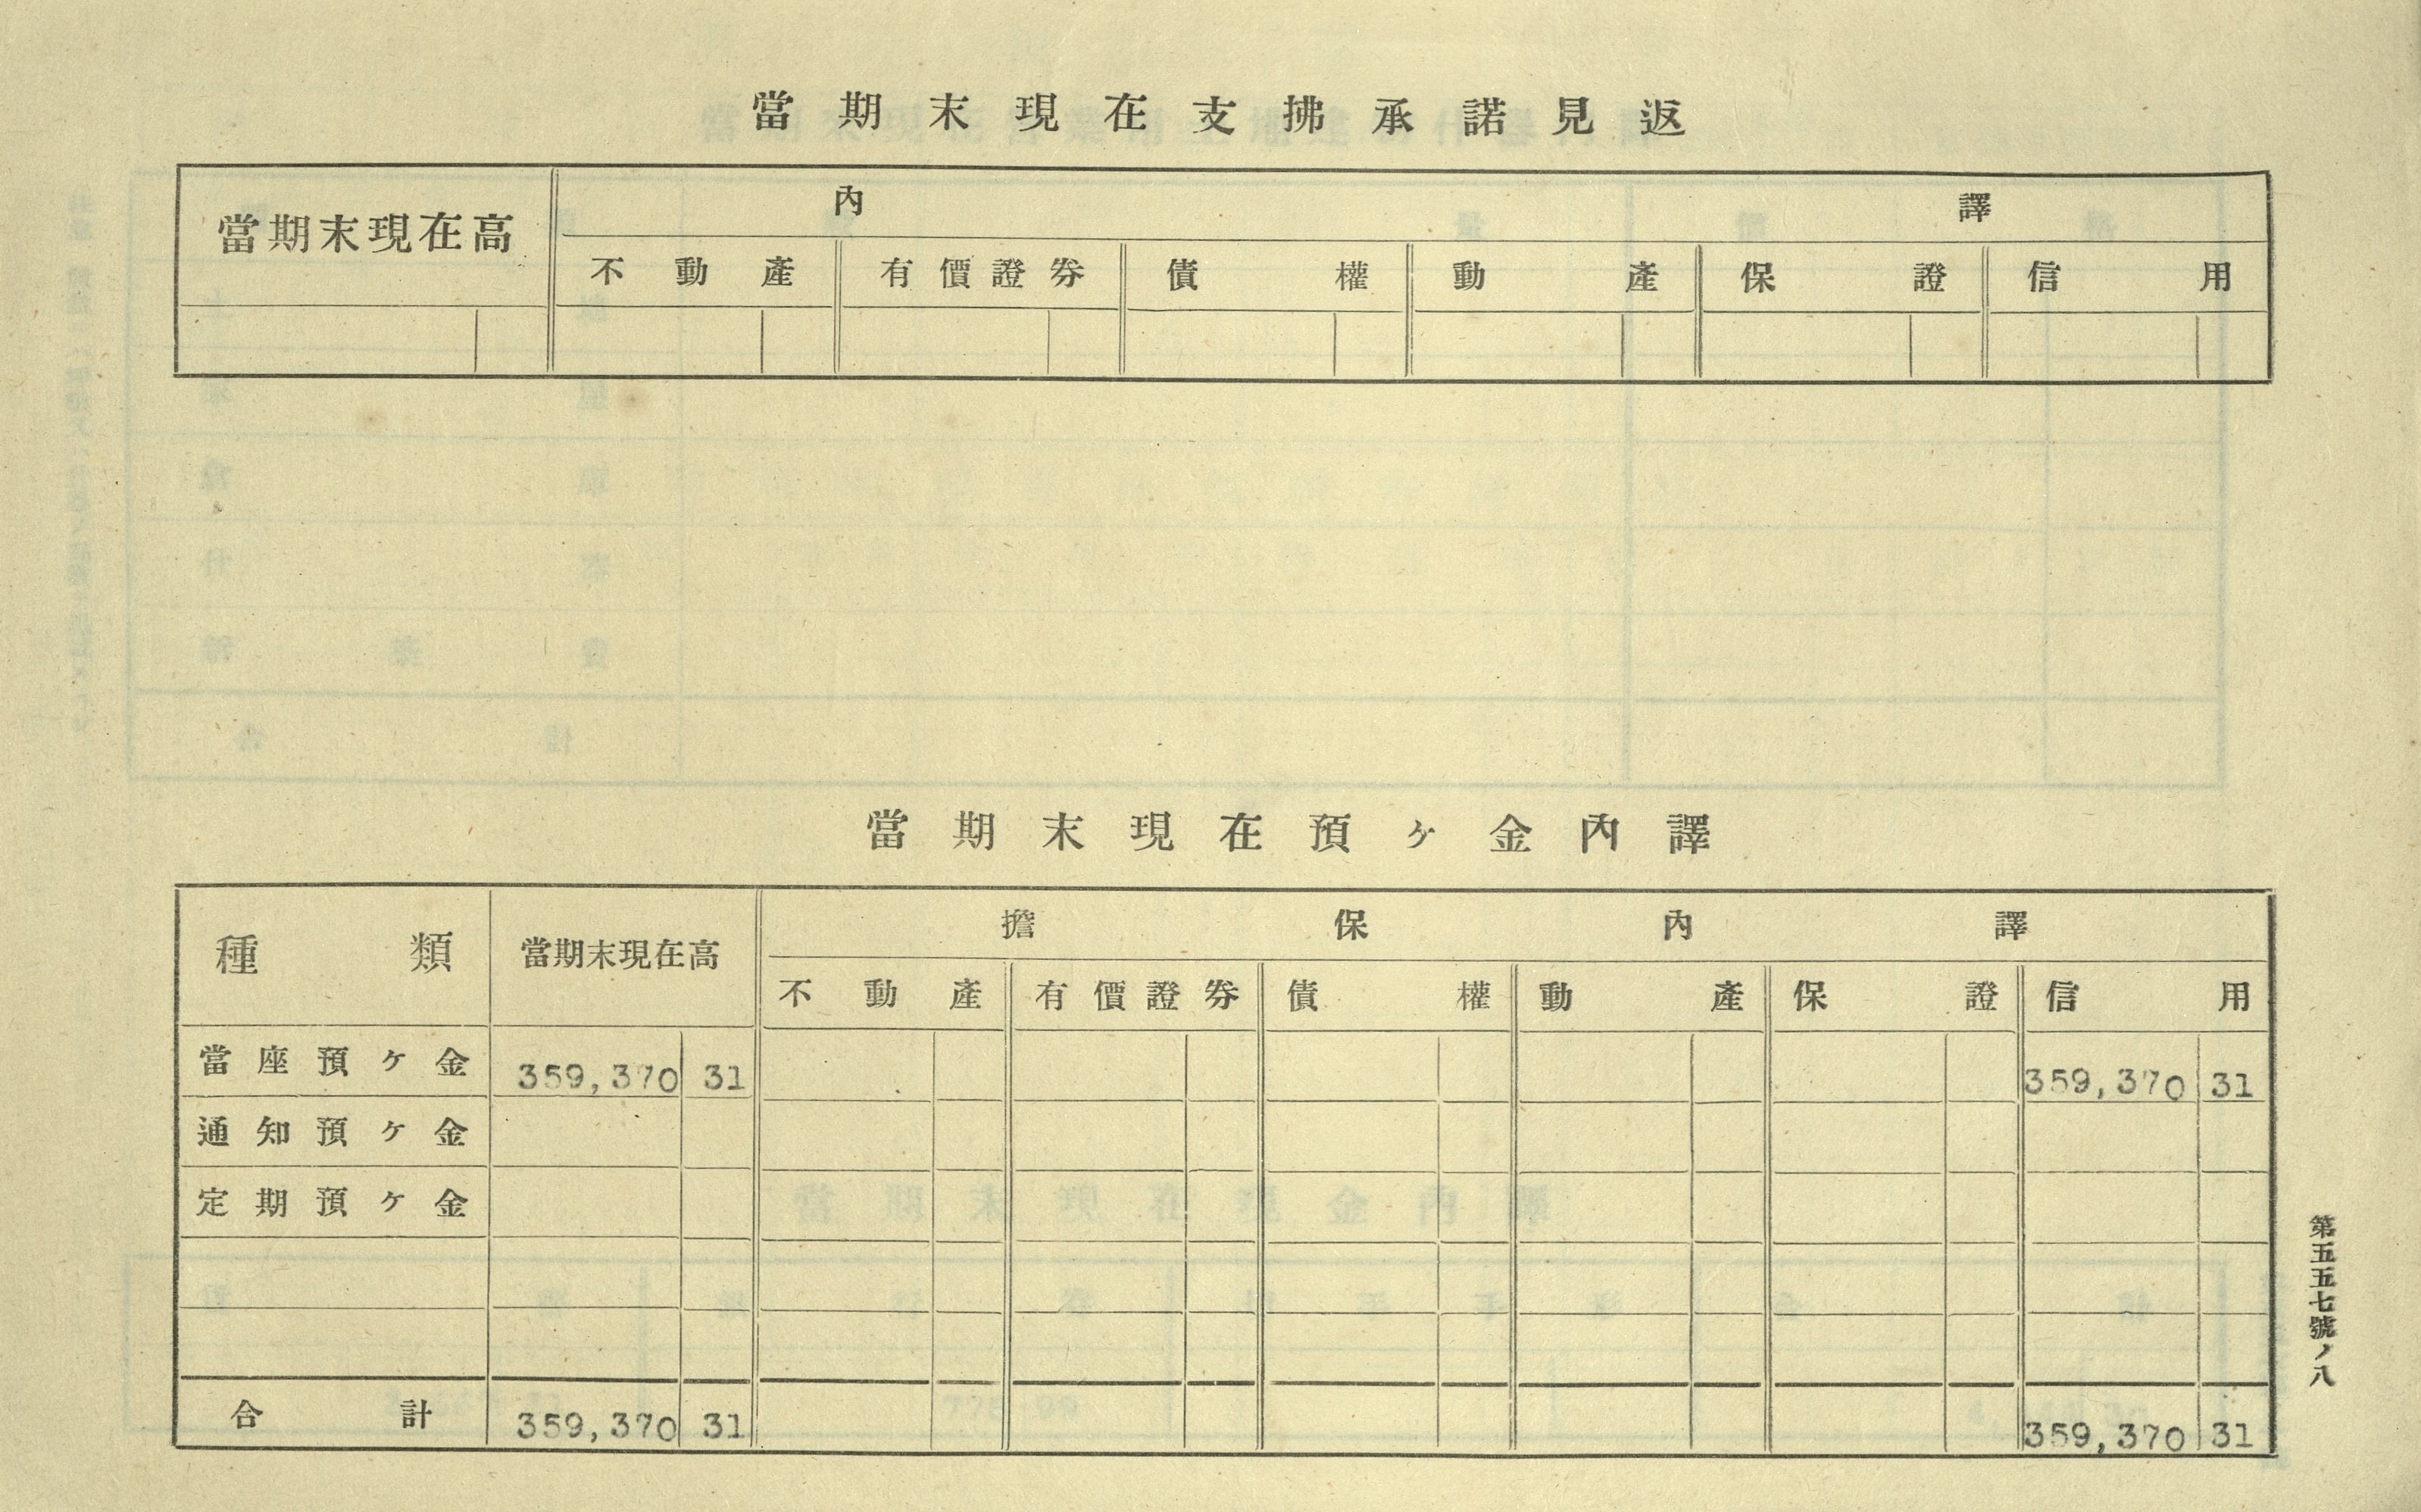 當期末現在支拂承諾見返
當期末現在高 內譯
不動產 有價證券 債權 動產 保證 信用
當期末現在預ヶ金內譯
種類 當期末現在高 擔保內譯
不動產 有價證券 債權 動產 保證 信用
當座預ヶ金 359,370 31 359,370 31
通知預ヶ金
定期預ヶ金
合計 359,370 31 359,370 31
第五五七號ノ八